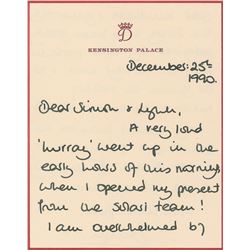 D
KENSINGTON PALACE
December: 25th
1990.
Dear Simon & Lynne,
A very loud
'hurray' went up in the
early hours of this morning,
when I opened my present
from the Solari team!
I am overwhelmed by